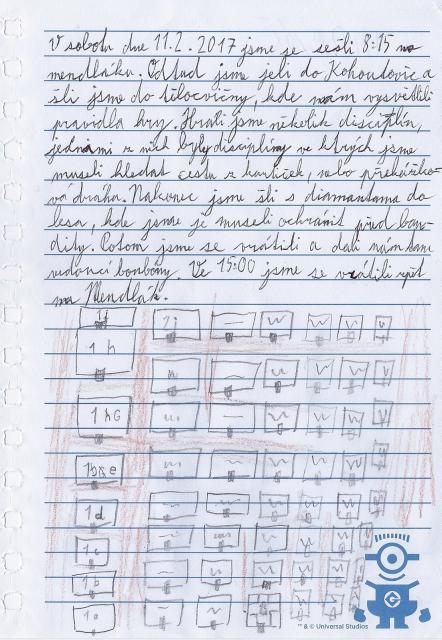 V sobotu dne 11.2.2017 jsme je sešli 8:15 na
mendláku. Odtud jsme jeli do Kohoutovic a
šli jsme do tělocvičny, kde nám vysvětlili
pravidla hry. Hráli jsme několik disciplín,
jednámi z nich byly disciplíny ve ktrych jsme
museli hledat cestu z kartiček, nebo překážko-
vá dráha. Nakonec jsme šli s diamantama do
lesa, kde jsme je museli ochránit před ban-
dity. Potom jsme se vrátili a dali nám
bonbony. Ve 15:00 jsme se vrátili zpět
na Mendlák.
1 h
1 hG
1 d
1 c
1 b
1 a
G
™ & © Universal Studios